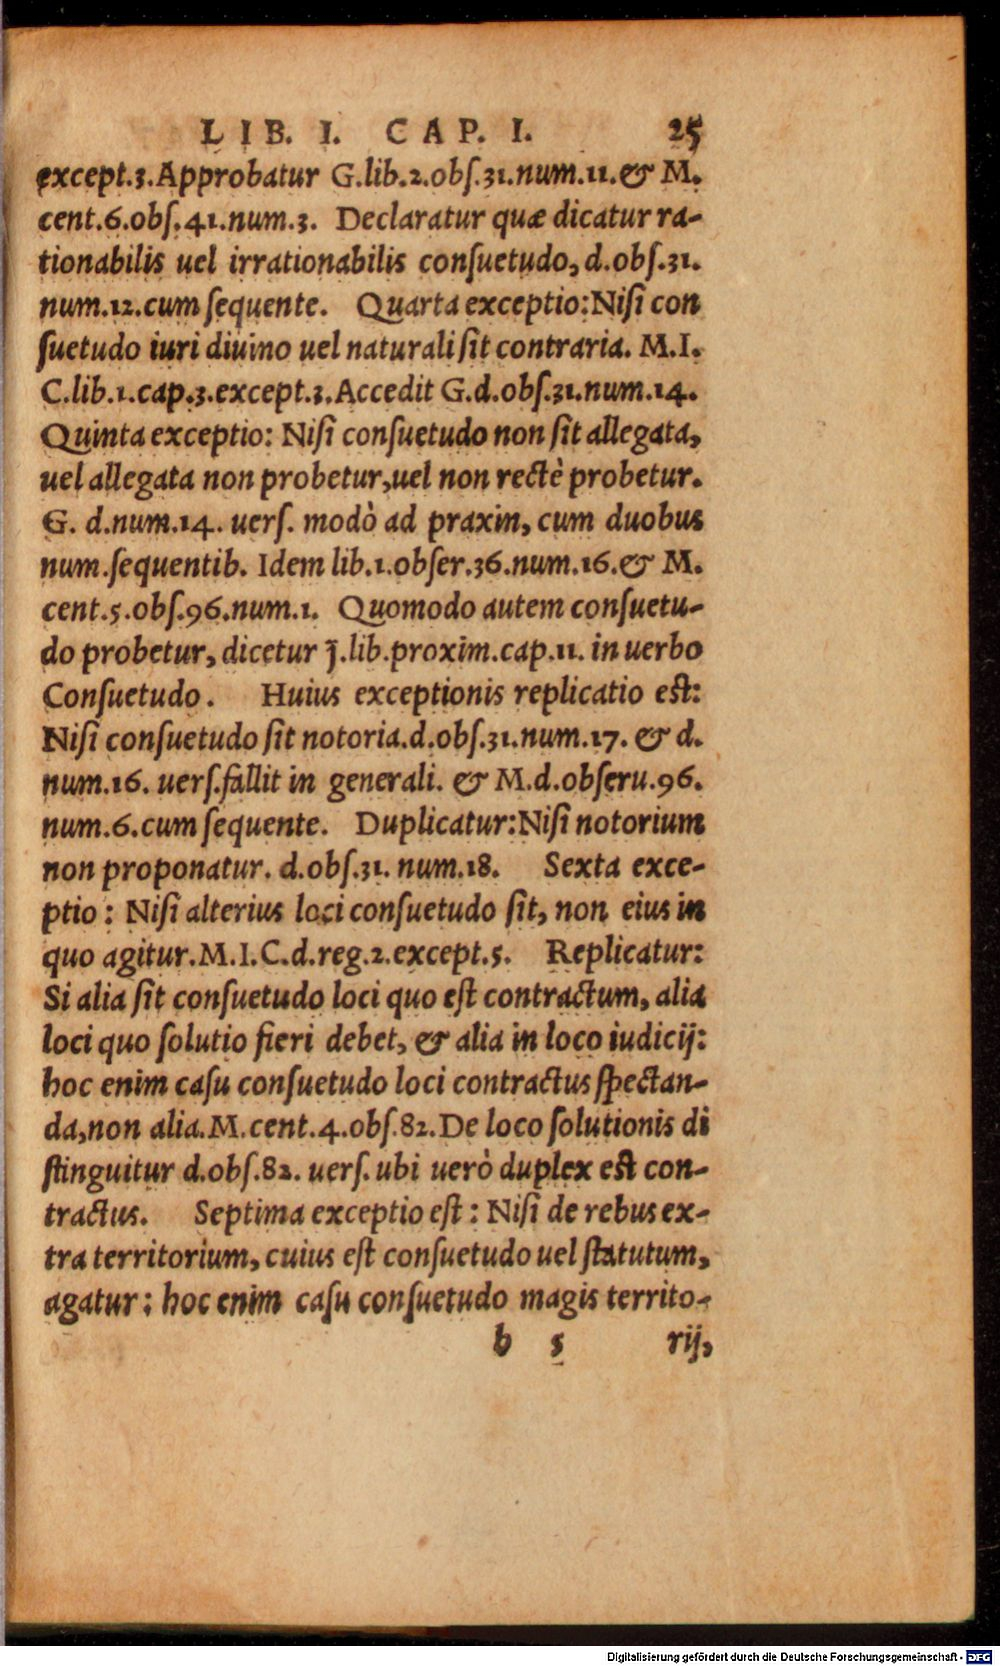 LIB. I. CAP. I. 25
except.3.Approbatur G.lib.2.obſ.31.num.11.& M.
cent.6.obſ.41.num.3. Declaratur quæ dicatur ra-
tionabilis uel irrationabilis conſuetudo, d.obſ.31.
num.12.cum ſequente. Quarta exceptio:Niſi con
ſuetudo iuri diuino uel naturali ſit contraria. M.I.
C.lib.1.cap.3.except.3.Accedit G.d.obſ.31.num.14.
Quinta exceptio: Niſi conſuetudo non ſit allegata,
uel allegata non probetur,uel non rectè probetur.
G. d.num.14. uerſ. modò ad praxin, cum duobus
num.ſequentib. Idem lib.1.obſer.36.num.16.& M.
cent.5.obſ.96.num.1. Quomodo autem conſuetu-
do probetur, dicetur j̄.lib.proxim.cap.11. in uerbo
Conſuetudo. Huius exceptionis replicatio eſt:
Niſi conſuetudo ſit notoria.d.obſ.31.num.17. & d.
num.16. uerſ.fallit in generali. & M.d.obſeru.96.
num.6.cum ſequente. Duplicatur:Niſi notorium
non proponatur. d.obſ.31. num.18. Sexta exce-
ptio : Niſi alterius loci conſuetudo ſit, non eius in
quo agitur.M.I.C.d.reg.2.except.5. Replicatur:
Si alia ſit conſuetudo loci quo eſt contractum, alia
loci quo ſolutio fieri debet, & alia in loco iudicij:
hoc enim caſu conſuetudo loci contractus ſpectan-
da,non alia.M.cent.4.obſ.82.De loco ſolutionis di
ſtinguitur d.obſ.82. uerſ. ubi uerò duplex eſt con-
tractus. Septima exceptio eſt : Niſi de rebus ex-
tra territorium, cuius eſt conſuetudo uel ſtatutum,
agatur : hoc enim caſu conſuetudo magis territo-
b 5 rij,
Digitalisierung gefördert durch die Deutsche Forschungsgemeinschaft - DFG